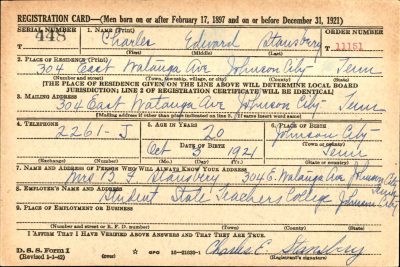 REGISTRATION CARD—(Men born on or after February 17, 1897 and on or before December 31, 1921)
SERIAL NUMBER 1. NAME (Print) ORDER NUMBER
448 Charles Edward Stansbery 11151
(First) (Middle) (Last)
2. PLACE OF RESIDENCE (Print)
304 East Watauga Ave Johnson City Tenn
(Number and street) (Town, township, village, or city) (County) (State)
[THE PLACE OF RESIDENCE GIVEN ON THE LINE ABOVE WILL DETERMINE LOCAL BOARD
JURISDICTION; LINE 2 OF REGISTRATION CERTIFICATE WILL BE IDENTICAL]
3. MAILING ADDRESS
304 East Watauga Ave Johnson City Tenn
[Mailing address if other than place indicated on line 2. If same insert word same]
4. TELEPHONE 5. AGE IN YEARS 6. PLACE OF BIRTH
2261-J 20 Johnson City
DATE OF BIRTH (Town or county)
Oct 3 1921 Tenn
(Exchange) (Number) (Mo.) (Day) (Yr.) (State or country)
7. NAME AND ADDRESS OF PERSON WHO WILL ALWAYS KNOW YOUR ADDRESS
Mrs Stansbery 304 E. Watauga Ave Johnson City Tenn
8. EMPLOYER'S NAME AND ADDRESS
Student State Teachers College Johnson City
9. PLACE OF EMPLOYMENT OR BUSINESS
(Number and street or R. F. D. number) (Town) (County) (State)
I AFFIRM THAT I HAVE VERIFIED ABOVE ANSWERS AND THAT THEY ARE TRUE.
D. S. S. Form 1 GPO Charles E. Stansbery
(Revised 1-1-42) (over) (Registrant's signature)